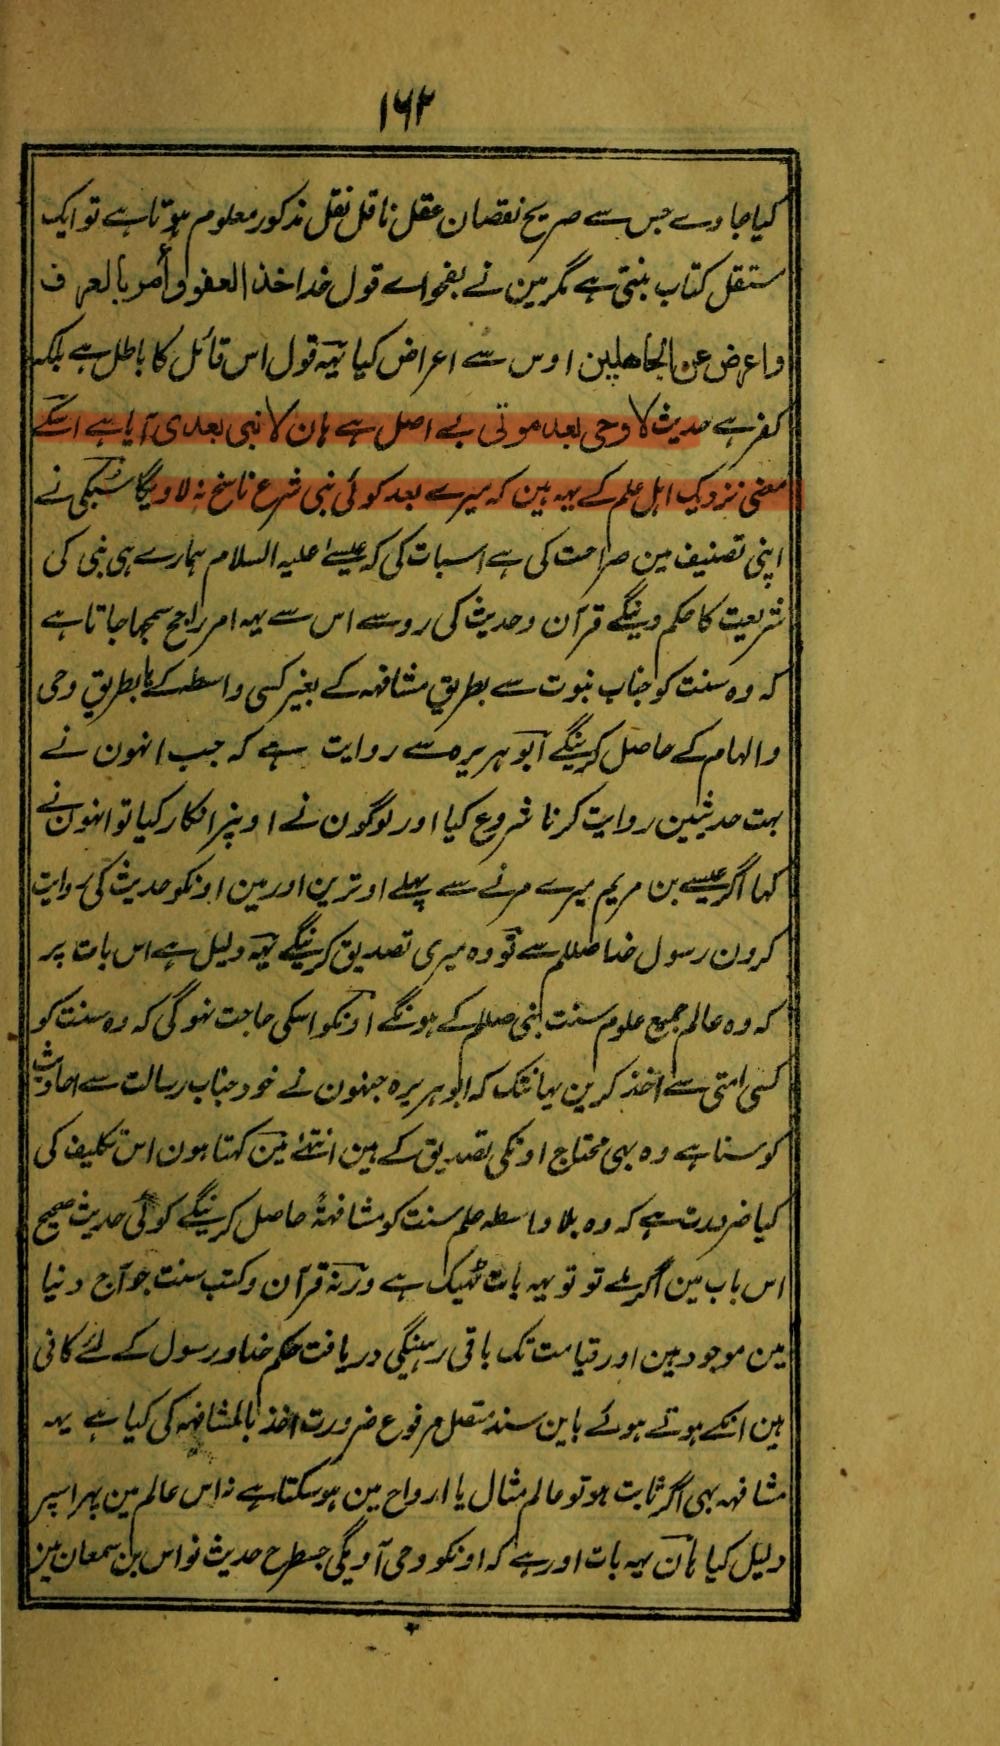 ۱۶۲
کیا جاوے جس سے صریح نقصان عقل ناقل نقل مذکور معلوم ہوتا ہے تو ایک
مستقل کتاب بنتی ہے مگر مین نے بفحواے قول خدا خذ العفو وأمر بالعرف
واعرض عن الجاهلین اوس سے اعراض کیا یہہ قول اس قائل کا باطل ہے بلکہ
کفر ہے حدیث لا وحی بعد موتی بے اصل ہے ہان لا نبی بعدی آیا ہے اسکے
معنی نزدیک اہل علم کے یہہ ہین کہ میرے بعد کوئی نبی شرع ناسخ نہ لاویگا سبکی نے
اپنی تصنیف مین صراحت کی ہے اسبات کی کہ عیسے علیہ السلام ہمارے ہی نبی کی
شریعت کا حکم دینگے قرآن و حدیث کی روسے اس سے یہہ امر راجح سمجہا جاتا ہے
کہ وہ سنت کو جناب نبوت سے بطریق مشافہہ کے بغیر کسی واسطہ کے یا بطریق وحی
و الہام کے حاصل کرینگے ابو ہریرہ سے روایت ہے کہ جب انہون نے
بہت حدیثین روایت کرنا شروع کیا اور لوگون نے اونپر انکار کیا تو انہون نے
کہا اگر عیسے بن مریم میرے مرنے سے پہلے اوترین اور مین اونکو حدیث کی روایت
کرون رسول خدا صللم سے تو وہ میری تصدیق کرینگے یہہ دلیل ہے اس بات پر
کہ وہ عالم جمیع علوم سنت نبی صللم کے ہونگے اونکو اسکی حاجت نہوگی کہ وہ سنت کو
کسی امتی سے اخذ کرین یہانتک کہ ابو ہریرہ جنہون نے خود جناب رسالت سے احادیث
کو سنا ہے وہ بہی محتاج اونکی تصدیق کے ہین انتہے مین کہتا ہون اس تکلیف کی
کیا ضرورت ہے کہ وہ بلا واسطہ علم سنت کو مشافہۃً حاصل کرینگے کوئی حدیث صحیح
اس باب مین اگر ملے تو تو یہہ بات ٹہیک ہے ورنہ قرآن و کتب سنت جو آج دنیا
مین موجود ہین اور قیامت تک باقی رہینگی دریافت حکم خدا و رسول کے لئے کافی
ہین انکے ہوتے ہوئے باین سند متصل مرفوع ضرورت اخذ بالمشافہہ کی کیا ہے یہہ
مشافہہ بہی اگر ثابت ہو تو عالم مثال یا ارواح مین ہوسکتا ہے نہ اس عالم مین پہر اسپر
دلیل کیا ہان یہہ بات اور ہے کہ اونکو وحی آویگی جسطرح حدیث نواس بن سمعان مین